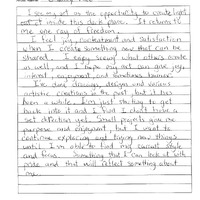 I see my art as the opportunity to create light
out it inside this dark place. It returns to
me one ray of freedom.
I feel joy, excitement and satisfaction
when I create something new that can be
shared. I enjoy seeing what others create
as well, and I hope my art can give joy,
and, enjoyment, and sometimes humor.
I've done drawings, designs and various
artistic creations in the past, but it has
been a while. I'm just starting to get
back into it and I find I don't have a
set direction yet. Small projects give me
purpose and enjoyment, but I want to
continue exploring and trying new things
until I'm able to find my current style
and focus. Something that I can look at with
pride and that will reflect something about
me.